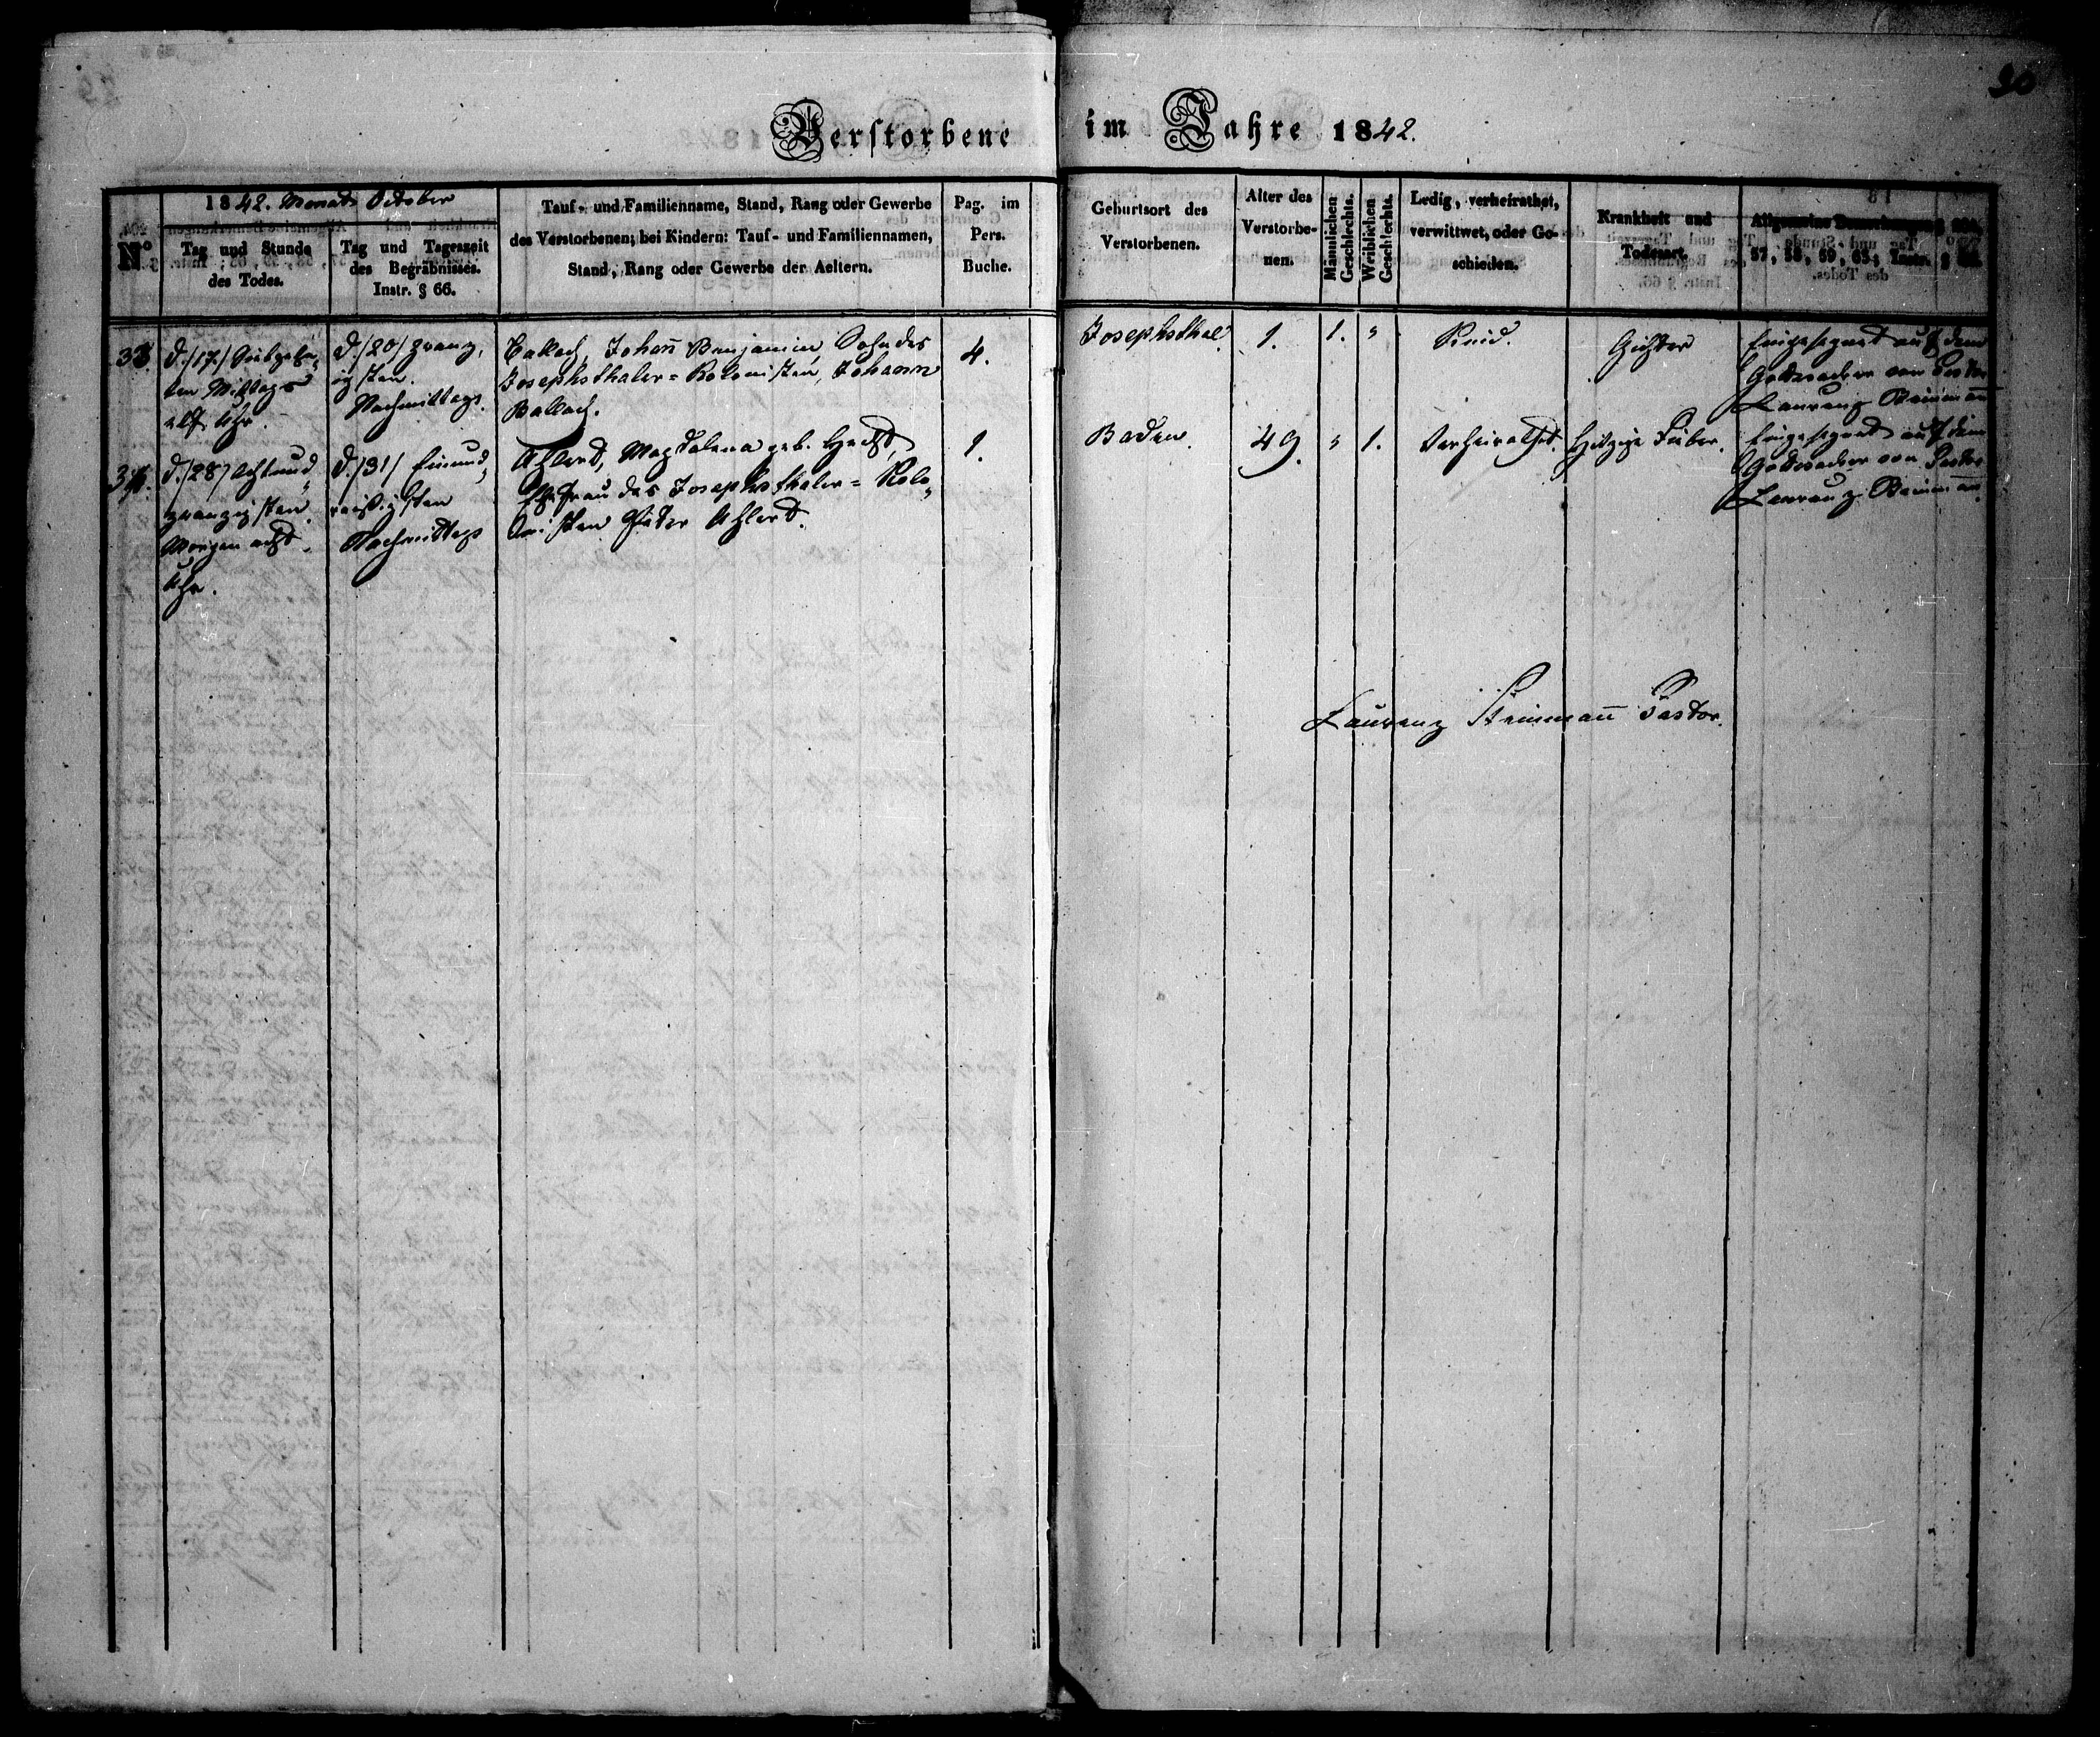 30
Verstorbene im Jahre 1842.
1842. Monats October
No
Tag und Stunde
des Todes.
Tag und Tageszeit
des Begräbnisses.
Instr. § 66.
Tauf- und Familienname, Stand, Rang oder Gewerbe
des Verstorbenen; bei Kindern: Tauf- und Familiennamen,
Stand, Rang oder Gewerbe der Aeltern.
Pag. im
Pers.
Buche.
Geburtsort des
Verstorbenen.
Alter des
Verstorbe-
nen.
Männlichen
Geschlechts.
Weiblichen
Geschlechts.
Ledig, verheirathet,
verwittwet, oder Ge-
schieden.
Krankheit und
Todesart.
Allgemeine Bemerkungen
57, 58, 59, 65, Instr.
d. /17/ Siebzehn-
ten Mittags
elf Uhr.
d. /20/ zwanz-
igsten.
Nachmittags.
Ballach, Johan̄ Benjamin, Sohn des
Josephsthaler-Kolonisten, Johann
Ballach.
4.
Josephsthal.
1.
1.
"
Kind.
Gichter
Eingesegnet auf dem
Gottesacker von Pastor
Laurenz Steinman̄
d. /28/ Achtund-
zwanzigsten
Morgen acht
Uhr.
d. /31/ Einund-
reißigsten
Nachmittags
Ahlert, Magdalena geb. Hecht,
Ehefrau des Josephsthaler-Kolo-
nisten Peter Ahlert.
1.
Baden.
49.
"
1.
Verheirathet.
Hitzige Fieber.
Eingesegnet auf dem
Gottesacker von Pastor
Laurenz Steinman̄.
Laurenz Steinman̄ Pastor.